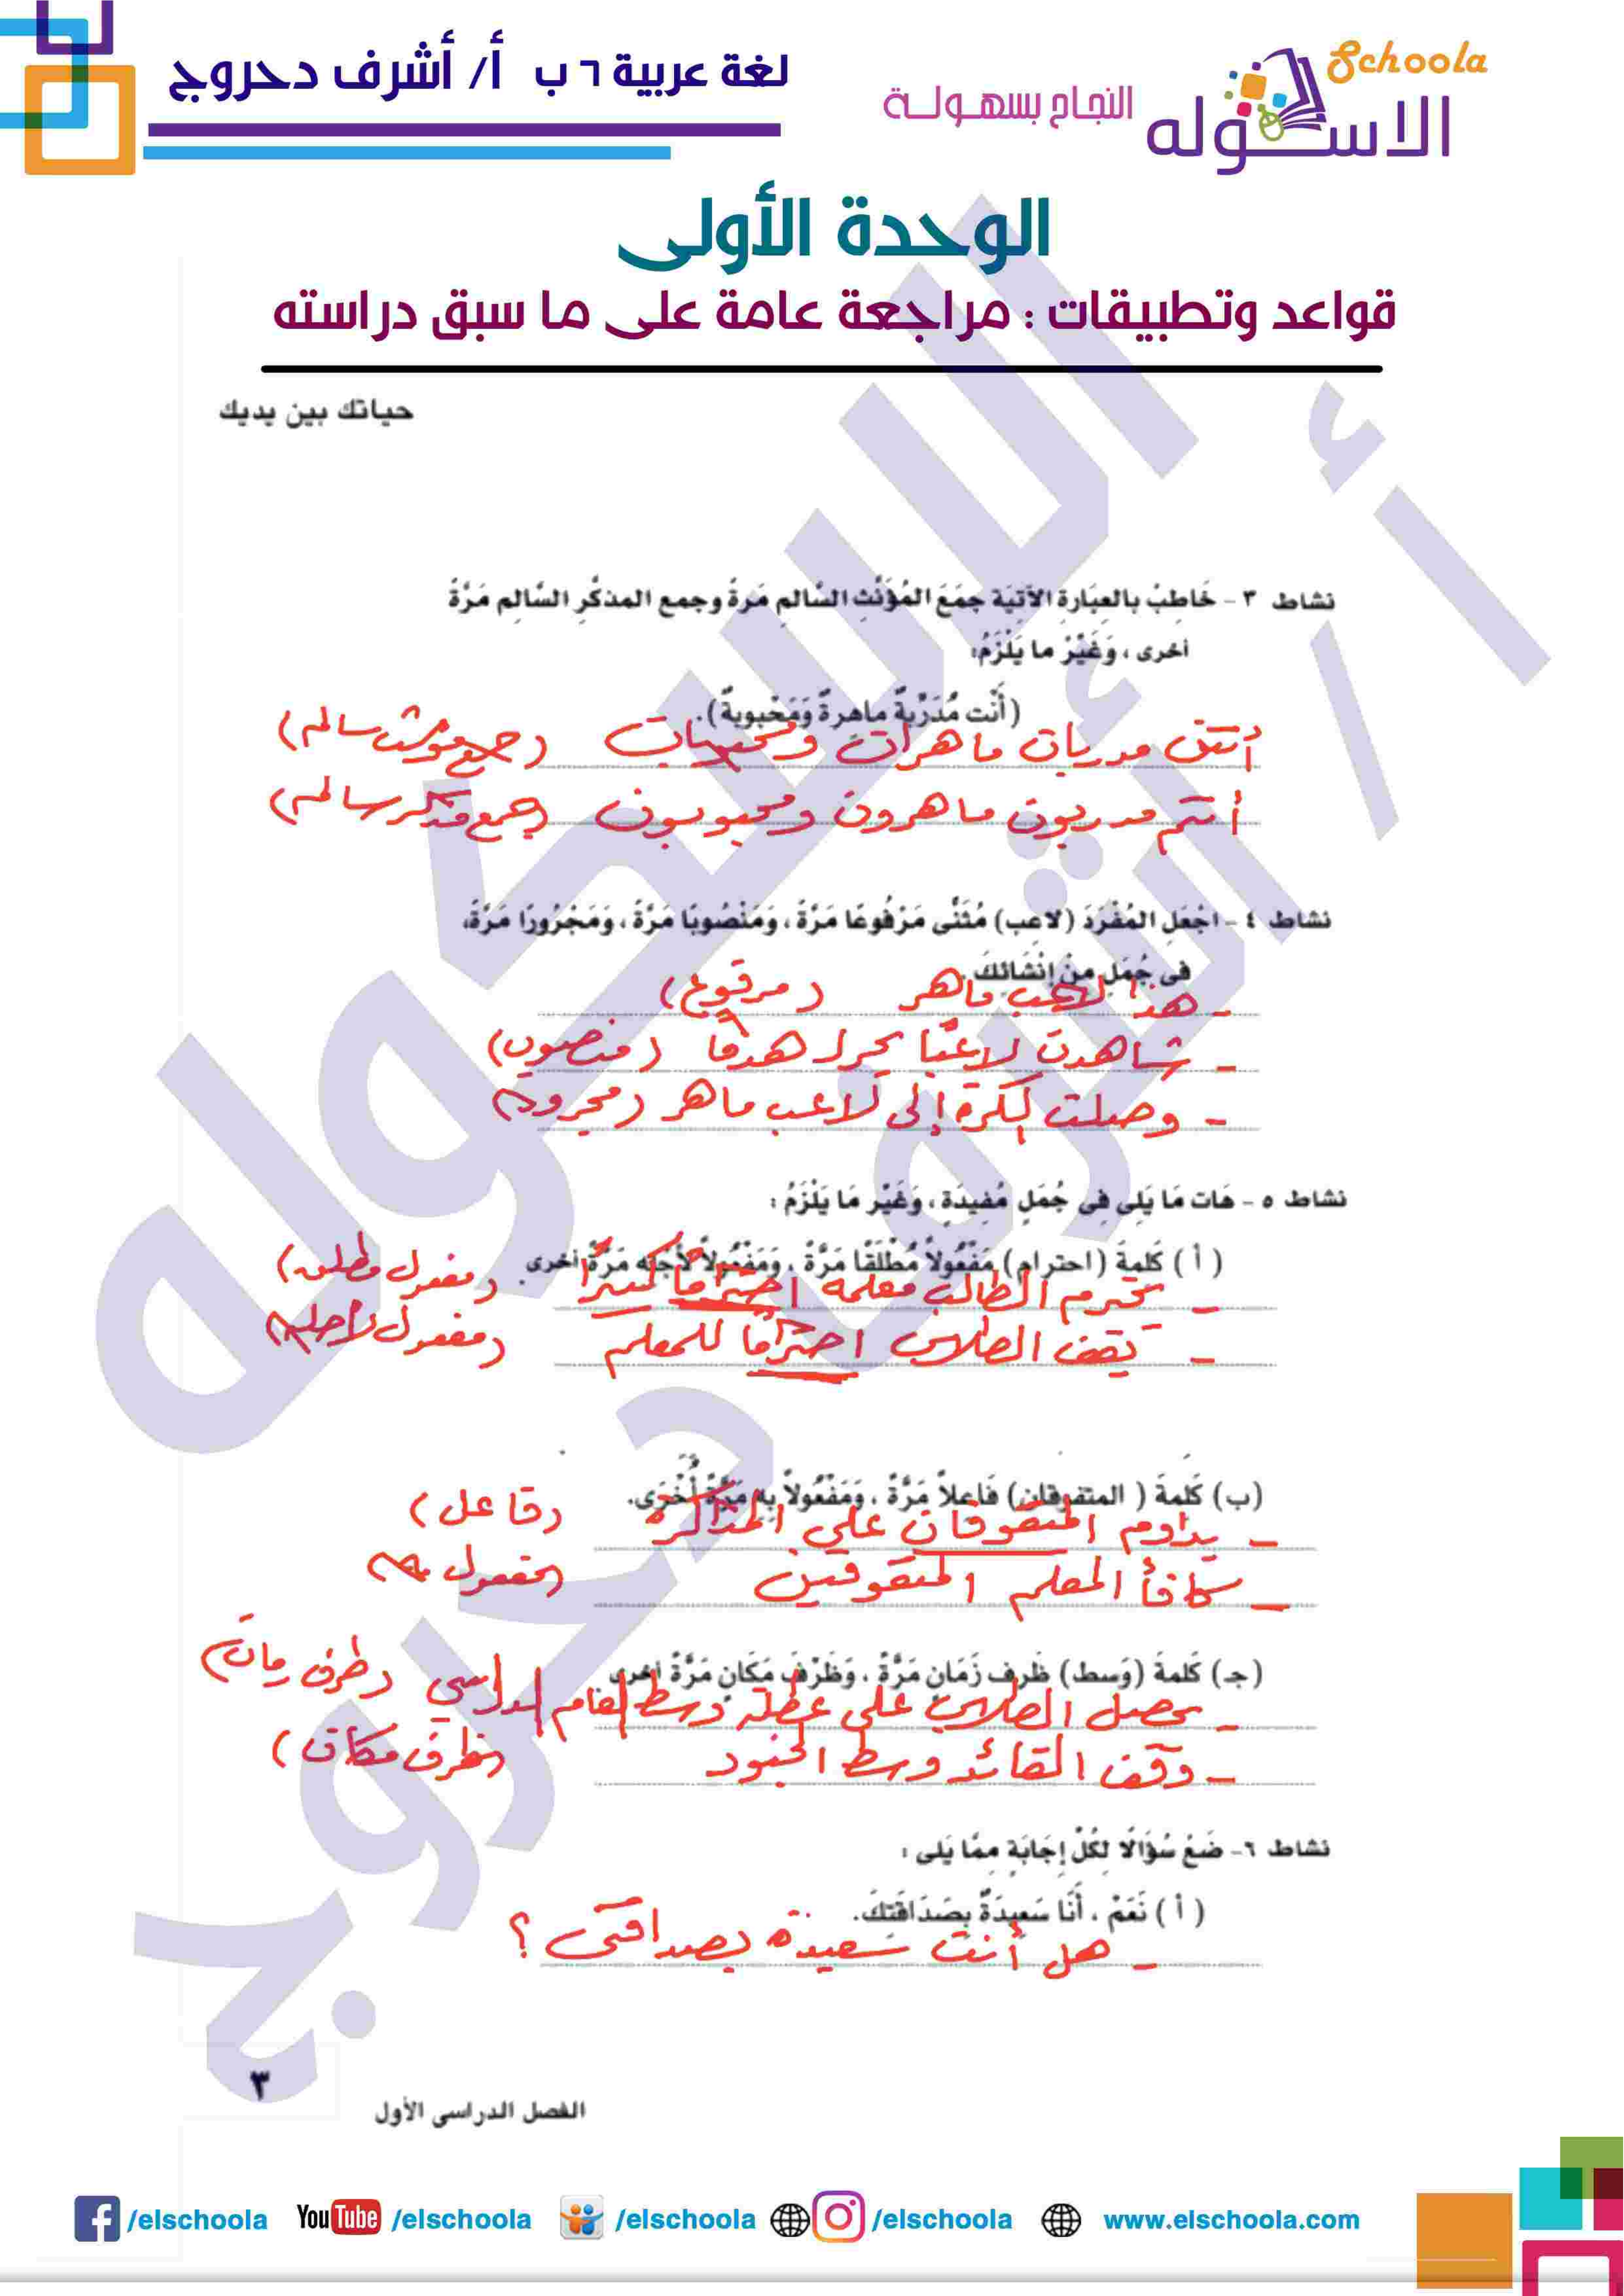 لغة عربية ٦ ب أ/ أشرف دحروج
Schoola
الاسكوله
النجاح بسهولة
الوحدة الأولى
قواعد وتطبيقات : مراجعة عامة على ما سبق دراسته
حياتك بين يديك
نشاط ٣ - خَاطِبْ بالعِبَارةِ الآتيَة جمَعَ المُؤَنَّثِ السَّالمِ مَرةً وجمع المذكَّرِ السَّالِمِ مَرَّةً
أخرى ، وَغَيِّرْ ما يَلْزَمُ:
(أَنْت مُدَرِّبةٌ ماهِرةٌ وَمَحْبوبةٌ).
أنتن مدربات ماهرات ومحبوبات (جمع مؤنث سالم)
أنتم مدربون ماهرون ومحبوبون (جمع مذكر سالم)
نشاط ٤ - اجْعَلِ المُفْرَدَ (لاعب) مُثَنًّى مَرْفُوعًا مَرَّةً ، وَمَنْصُوبًا مَرَّةً ، وَمَجْرُورًا مَرَّةً،
فى جُمَلٍ مِنْ إنْشَائِكَ .
- هذا لاعب ماهر (مرفوع)
- شاهدت لاعبًا يحرز هدفًا (منصوب)
- وصلت الكرة إلى لاعب ماهر (مجرور)
نشاط ٥ - هَات مَا يَلِى فِى جُمَلٍ مُفِيدَةٍ ، وَغَيِّر مَا يَلْزَمُ :
( أ ) كَلمةَ (احترام) مَفْعُولاً مُطْلَقًا مَرَّةً ، وَمَفْعُولاً لأجْله مَرَّةً أخرى .
- يحترم الطالب معلمه احترامًا كبيرًا (مفعول مطلق)
- يقف الطلاب احترامًا للمعلم (مفعول لأجله)
(ب) كَلمةَ ( المتفوقان) فَاعلاً مَرَّةً ، وَمَفْعُولاً بِه مَرَّةً أُخْرَى.
- يداوم المتفوقان على المذاكرة (فاعل)
- كافأ المعلم المتفوقين (مفعول به)
(جـ) كَلمةَ (وَسط) ظَرف زَمَانٍ مَرَّةً ، وَظَرْفَ مَكَانٍ مَرَّةً أخرى
- يحصل الطلاب على عطلة وسط العام الدراسي (ظرف زمان)
- وقف القائد وسط الجنود (ظرف مكان)
نشاط ٦- ضَعْ سُؤَالًا لكُلِّ إجَابَةٍ ممَّا يَلى :
( أ ) نَعَمْ ، أَنَا سَعِيدَةٌ بِصَدَاقَتِكَ.
- هل أنت سعيدة بصداقتى ؟
٣
الفصل الدراسى الأول
/elschoola YouTube /elschoola /elschoola /elschoola www.elschoola.com
الاسكوله
أ/ أشرف دحروج